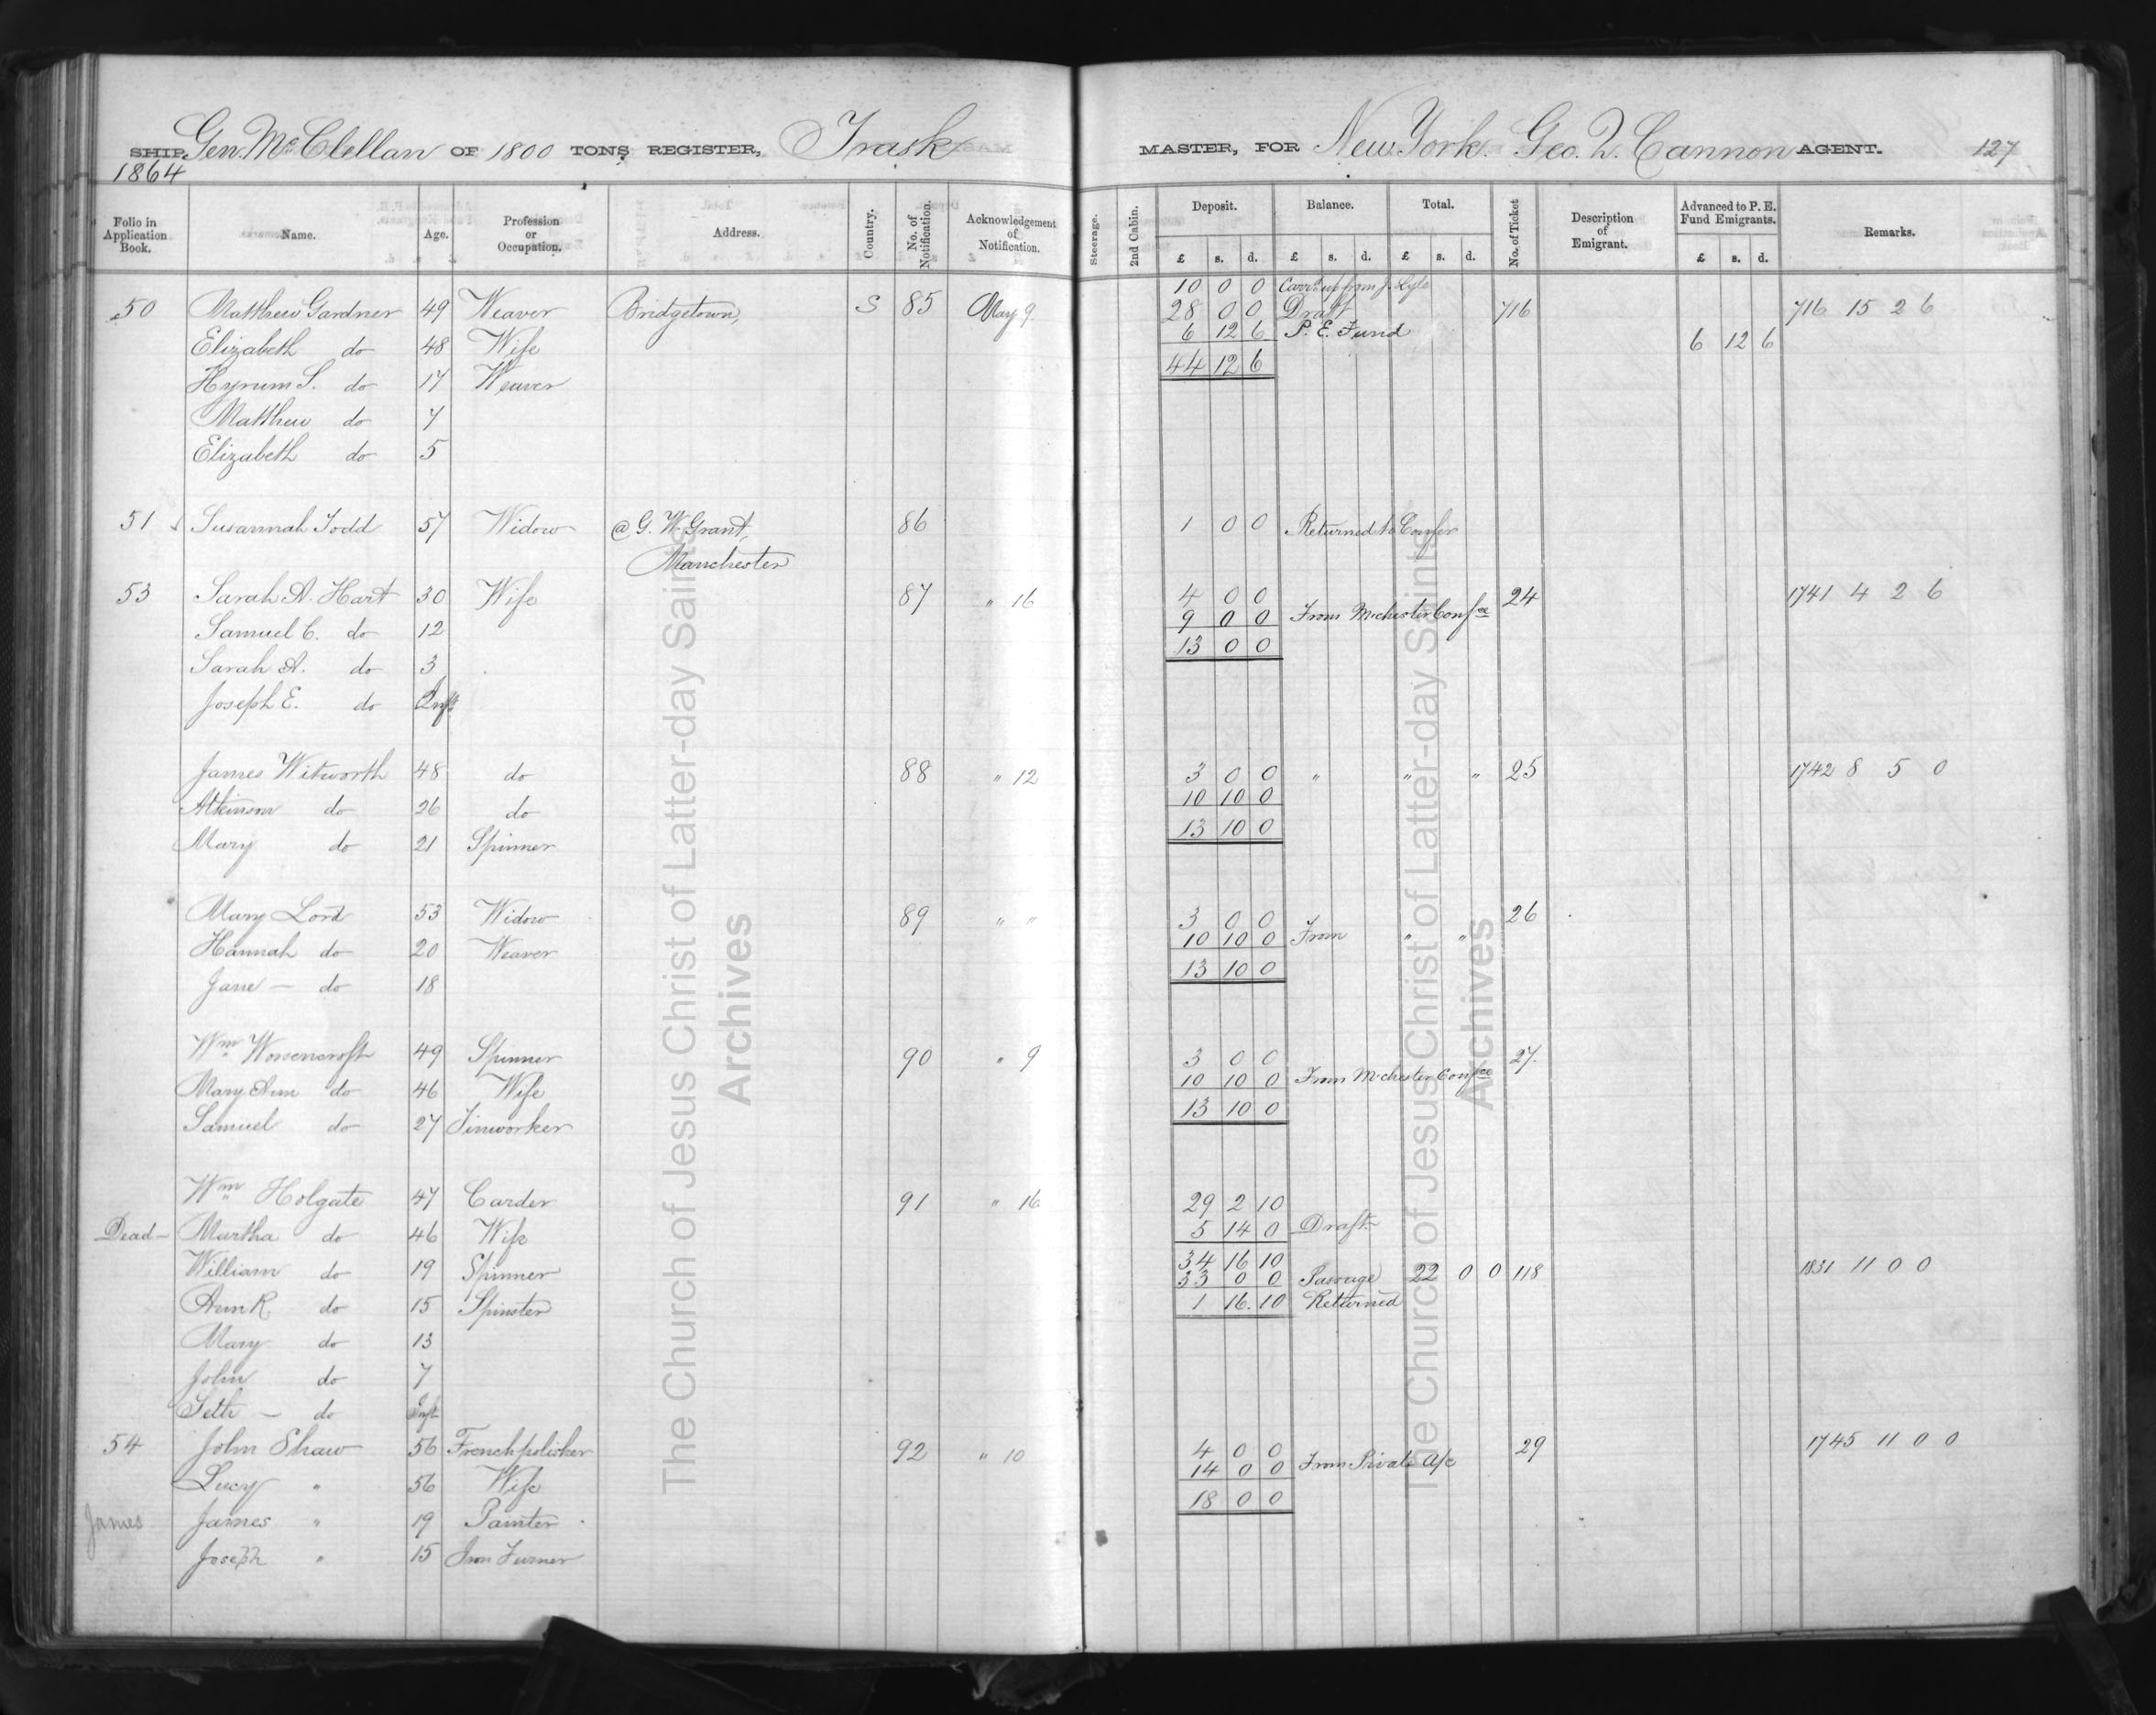 SHIP Gen. McClellan OF 1800 TONS REGISTER, Trask MASTER, FOR New York. Geo. Q. Cannon AGENT. 127
1864
Folio in Application Book. Name. Age. Profession or Occupation. Address. Country. No. of Notification. Acknowledgement of Notification. Steerage. 2nd Cabin. Deposit. Balance. Total. No. of Ticket Description of Emigrant. Advanced to P. E. Fund Emigrants. Remarks.
£ s. d. £ s. d. £ s. d. £ s. d.
10 0 0 Carrd up from J. Lyle
50 Matthew Gardner 49 Weaver Bridgetown, S 85 May 9 28 0 0 Draft 716 716 15 2 6
6 12 6 P. E. Fund
Elizabeth do 48 Wife 6 12 6
44 12 6
Hyrum S. do 17 Weaver
Matthew do 7
Elizabeth do 5
51 Susannah Todd 57 Widow @ G. W. Grant, 86 1 0 0 Returned to Confer
Manchester
53 Sarah A. Hart 30 Wife 87 " 16 4 0 0 24 1741 4 2 6
9 0 0 From Mchester Confce
Samuel C. do 12
13 0 0
Sarah A. do 3
Joseph E. do Inft
James Witworth 48 do 88 " 12 3 0 0 " " " 25 1742 8 5 0
10 10 0
Atkinson do 26 do
13 10 0
Mary do 21 Spinner
Mary Lord 53 Widow 89 " " 3 0 0 26
10 10 0 From " "
Hannah do 20 Weaver
13 10 0
Jane — do 18
Wm Worsencroft 49 Spinner 90 " 9 3 0 0 27.
10 10 0 From Mchester Confce
Mary Ann do 46 Wife
13 10 0
Samuel do 27 Tinworker
Wm Holgate 47 Carder 91 " 16 29 2 10
Dead — Martha do 46 Wife 5 14 0 Draft
34 16 10
William do 19 Spinner 33 0 0 Passage 22 0 0 118 1831 11 0 0
Ann R. do 15 Spinster 1 16. 10 Returned
Mary do 13
John do 7
Seth — do Inft
54 John Shaw 56 Frenchpolisher 92 " 10 4 0 0 29 1745 11 0 0
14 0 0 From Private a/c
Lucy " 56 Wife
18 0 0
James James " 19 Painter
Joseph " 15 Iron Turner
The Church of Jesus Christ of Latter-day Saints
Archives
The Church of Jesus Christ of Latter-day Saints
Archives